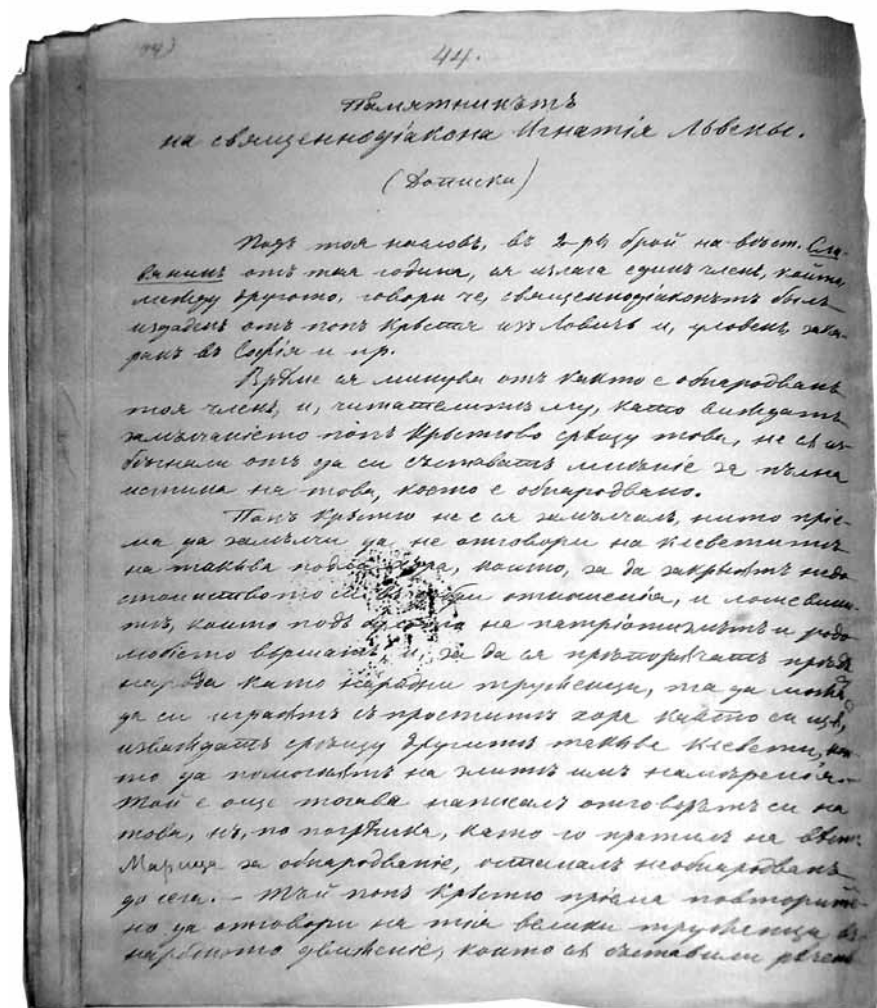 44.
Памятникътъ
на священнодіакона Игнатія Львскы.
(Дописки)
Подъ тоя насловъ, въ 2-ры брой на вѣст. Сла-
вянинъ отъ тая година, ся излага единъ членъ, който,
между другото, говори че, священнодіаконътъ былъ
издаденъ отъ попъ Кръстя изъ Ловичь и, уловенъ, зака-
ранъ въ Софія и пр.
Врѣме ся минува отъ както е обнародванъ
тоя членъ, и, читателитѣ му, като виждатъ
замълчаніето попъ Кръстюво срѣщу това, не сѫ из-
бѣгнали отъ да си съставятъ мнѣніе за пълна
истина на това, което е обнародвано.
Попъ Кръстю не е ся замълчалъ, нито пріе-
ма да замълчи да не отговори на клеветитѣ
на такыва подлы хора, които, за да закрыѭтъ недо-
стоинството си въ добри отношенія, и
които подъ на патріотизмътъ и родо-
любіето вършатъ, и, за да ся прѣпорѫчатъ прѣдъ
народа като народни труженици, та да можѫтъ
да си играѭтъ съ проститѣ хора както си щѫтъ,
изваждатъ срѣщу другитѣ такыва клевети, ко-
то да помогнѫтъ на злитѣ имъ намѣренія. -
Той е още тогава написалъ отговорътъ си на
това, нъ, по погрѣшка, като го пратилъ на вѣст.
Марица за обнародваніе, останалъ необнародванъ
до сега. - Тъй попъ Кръстю пріема повторител-
но да отговори на тія велики труженици въ
народното движеніе, които сѫ съставили реченъ